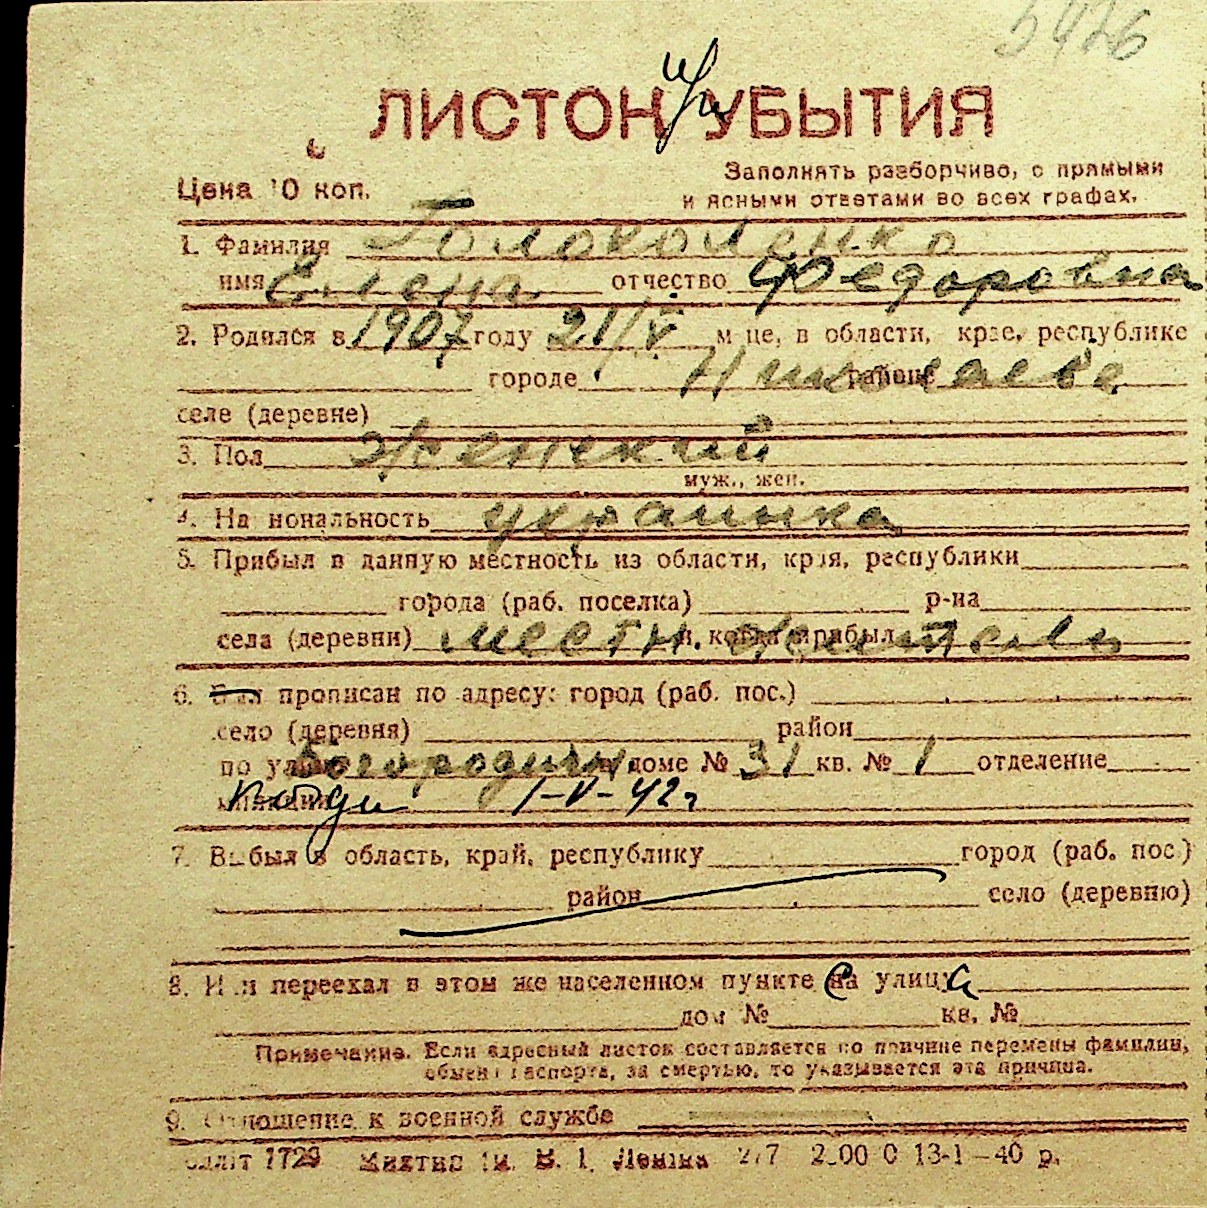 5426
ЛИСТОК УБЫТИЯ
Цена 10 коп.
Заполнять разборчиво, с прямыми
и ясными ответами во всех графах.
1. Фамилия Голоколенко
имя Елена отчество Федоровна
2. Родился в 1907 году 21/V м-це, в области, крае, республике
городе Николаеве районе
селе (деревне)
3. Пол Женский
муж., жен.
4. Национальность украинка
5. Прибыл в данную местность из области, края, республики
города (раб. поселка) р-на
села (деревни) местн. житель и когда прибыл
6. Был прописан по адресу: город (раб. пос.)
село (деревня) район
по улице Богородичн. в доме № 31 кв. № 1 отделение
милиции 1-V-42 г
7. Выбыл в область, край, республику город (раб. пос.)
район село (деревню)
8. Или переехал в этом же населенном пункте на улицу
дом № кв. №
Примечание. Если адресный листок составляется по причине перемены фамилии,
обмена паспорта, за смертью, то указывается эта причина.
9. Отношение к военной службе
1729 В. І. Леніна 277 13-1-40 р.